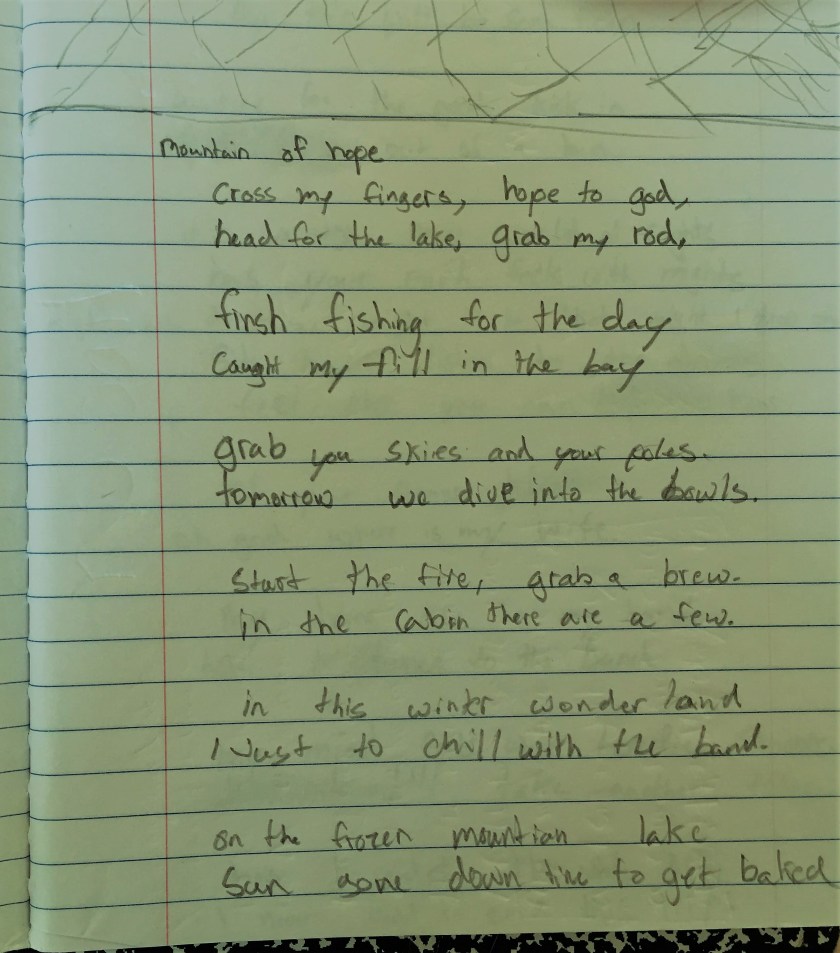 Mountain of hope
Cross my fingers, hope to god,
head for the lake, grab my rod,
finsh fishing for the day
Caught my fill in the bay
grab you skies and your poles.
tomorrow we dive into the bowls.
Start the fire, grab a brew.
in the cabin there are a few.
in this winter wonder land
I Just to chill with the band.
on the frozen mountian lake
Sun gone down time to get baked